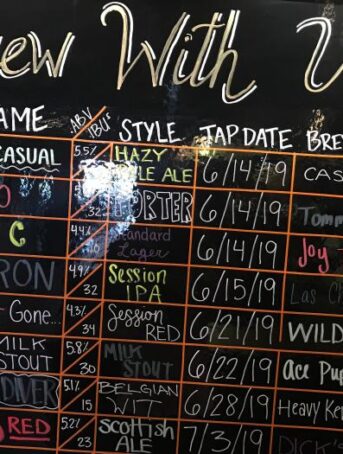 ew With
AME ABV IBU'S STYLE TAP DATE BRE
CASUAL 5.5% HAZY PALE ALE 6/14/19 CAS
O 32 PORTER 6/14/19 Tomm
C 4.4% Standard Lager 6/14/19 Joy
RON 4.9% 32 Session IPA 6/15/19 Las Ch
Gone... 4.3% 34 Session RED 6/21/19 WILD
MILK STOUT 5.8% 30 MILK STOUT 6/22/19 Ace Pup
DIVER 5.1% 15 BELGIAN WIT 6/28/19 Heavy Ke
RED 5.2% 23 SCOTTISH ALE 7/3/19 DICK'S